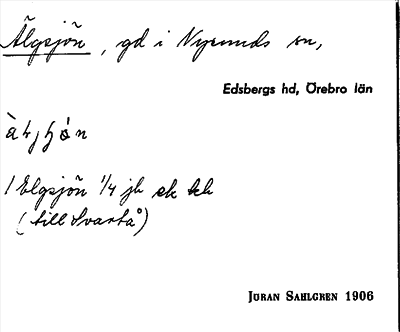 Älgsjön, gd i Nysunds sn,
Edsbergs hd, Örebro län
1 Elgsjön 1/4 jb sk kh
(till Svartå)
JÖRAN SAHLGREN 1906